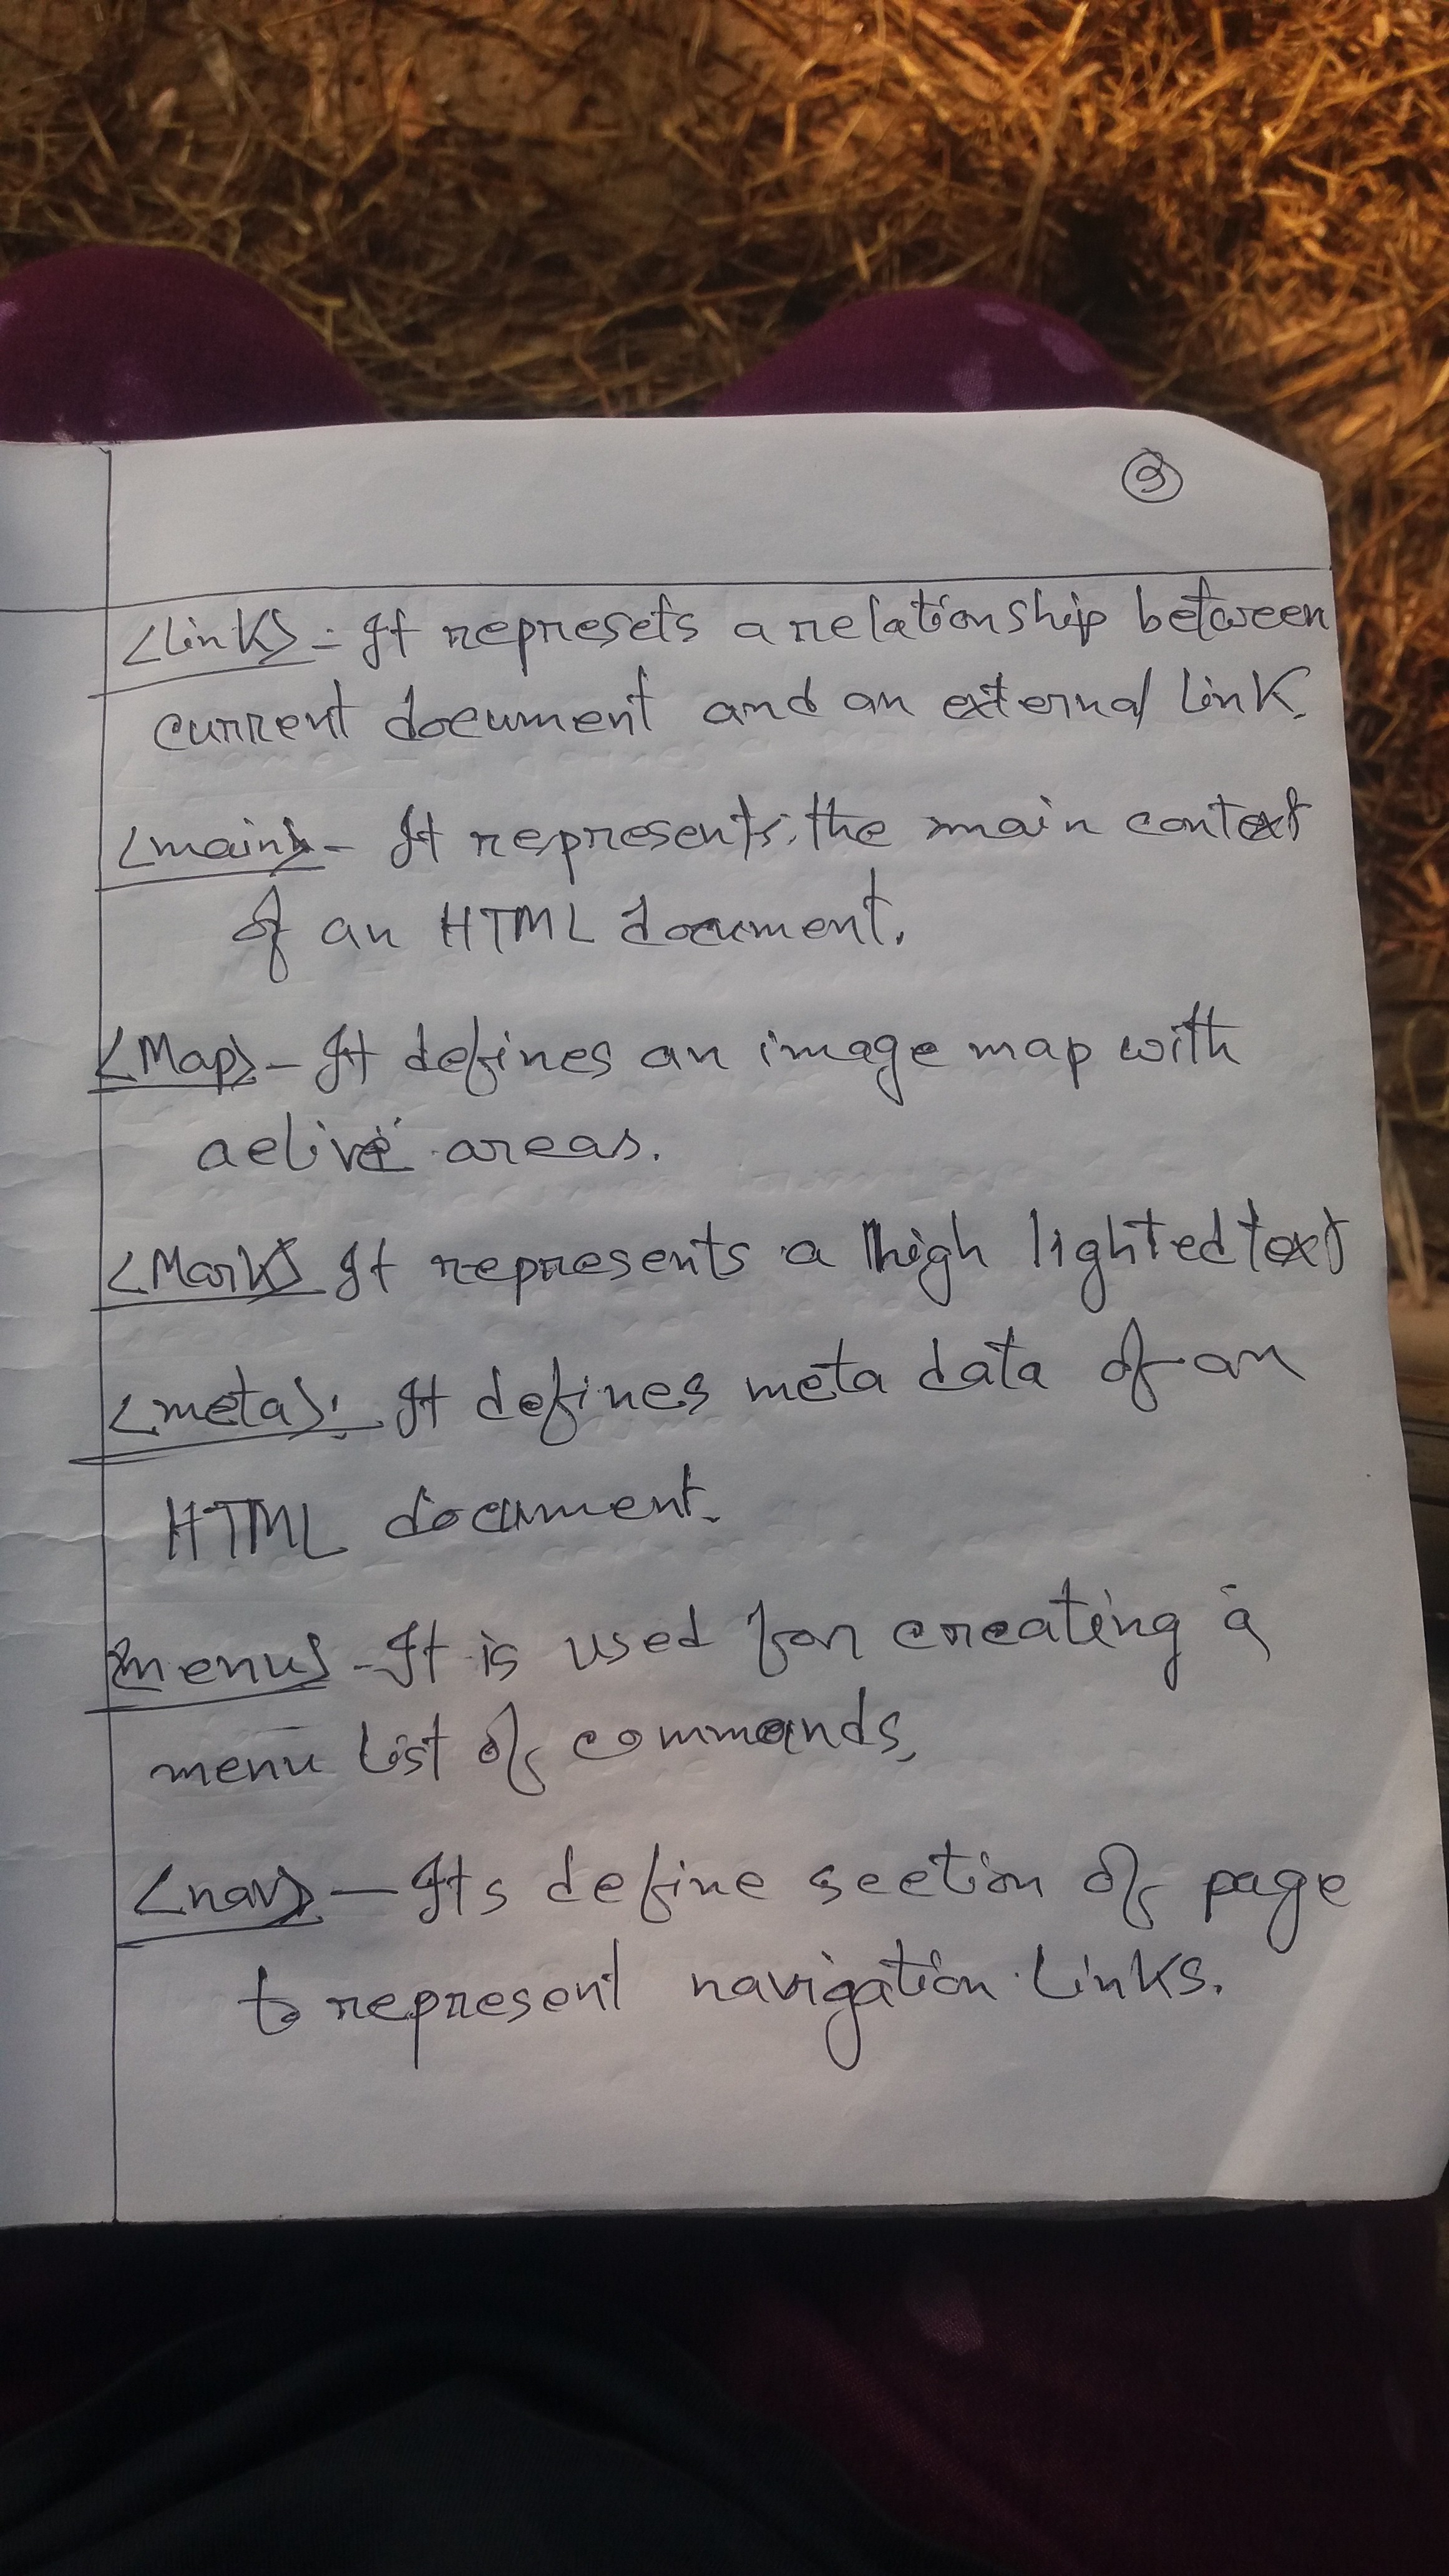 9
<link> - It represets a relationship between
current document and an external link.
<main> - It represents the main context
of an HTML document.
<Map> - It defines an image map with
active areas.
<Mark> It represents a high lighted text
<meta>: It defines meta data of an
HTML document.
<menu> - It is used for creating a
menu list of commands,
<nav> - Its define section of page
to represent navigation links.